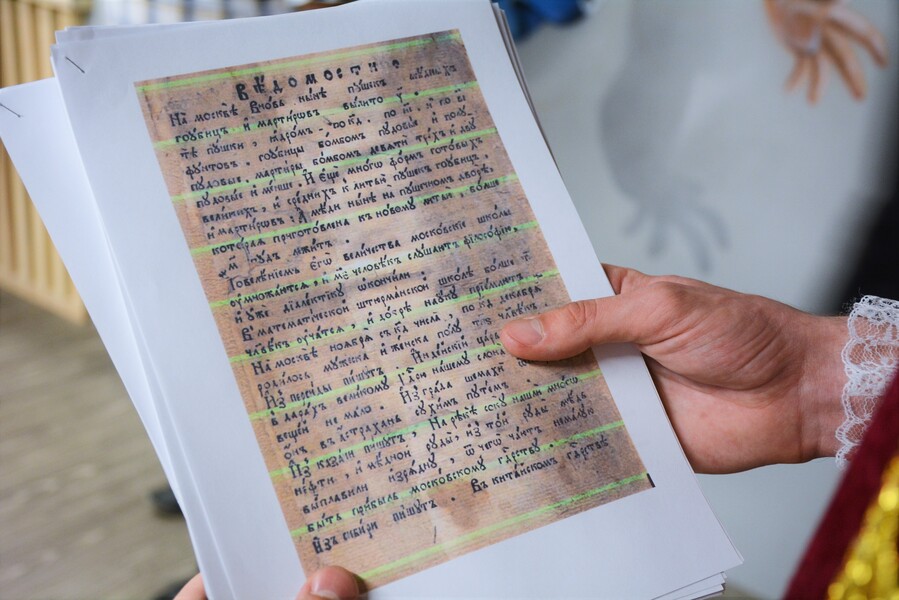 ВѢДОМОСТИ
На москвѣ вновь нынѣ пушекъ мѣдныхъ
гоубицъ и мартировъ вылито
тѣ пушки, ядромъ по кд, по иі, и по ві
фунтовъ. гоубицы бомбомъ пудовые и полу
пудовые. мартиры бомбомъ девяти трехъ и дву
пудовые и менше. И еще много формъ готовыхъ
великихъ, и среднихъ к литью пушекъ гоубицъ
и мартировъ: А мѣди нынѣ на пушечномъ дворѣ,
которая приготовлена къ новому литью, болше
҂м пудъ лежитъ.
Повелѣніемъ егѡ величества московскія школы
умножаются, и ме человѣкъ слушаютъ философію,
и уже діалектику ѡкончили.
В математической штюрманской школѣ болше т
человѣкъ учатся, и добрѣ науку пріемлютъ.
На москвѣ ноября съ кд числа, по кд декабря
родилось мужеска и женска полу
Изъ персиды пишутъ. Индѣйскій царь
в дарахъ великому Гдрю нашему слона
вещей не мало. Изъ града шемахи
ѡнъ въ астрахань сухимъ путемъ.
Изъ казани пишутъ. На рѣкѣ соку нашли много
нефти, и мѣдной руды, изъ той руды мѣдь
выплавили изрядно, ѿ чегѡ чаютъ немалую
быть прибыль московскому гдрству.
Изъ сибири пишутъ. Въ китайскомъ гдрствѣ